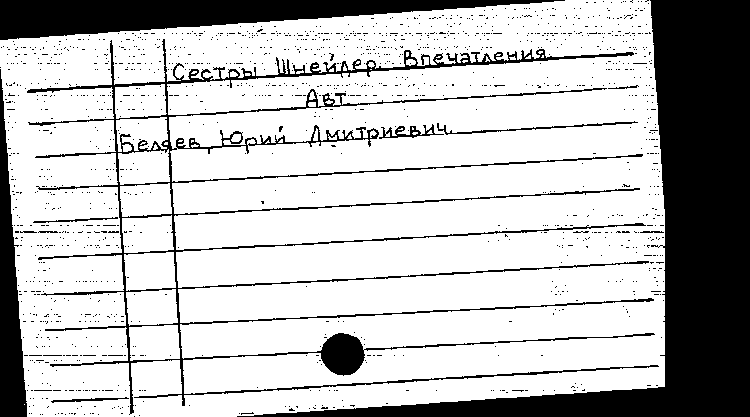 Сестры Шнейдер. Впечатления.
Авт.
Беляев, Юрий Дмитриевич.